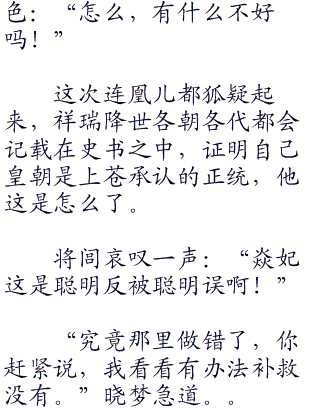 色：“怎么，有什么不好
吗！”
这次连凰儿都狐疑起
来，祥瑞降世各朝各代都会
记载在史书之中，证明自己
皇朝是上苍承认的正统，他
这是怎么了。
将闾哀叹一声：“焱妃
这是聪明反被聪明误啊！”
“究竟那里做错了，你
赶紧说，我看看有办法补救
没有。”晓梦急道。。